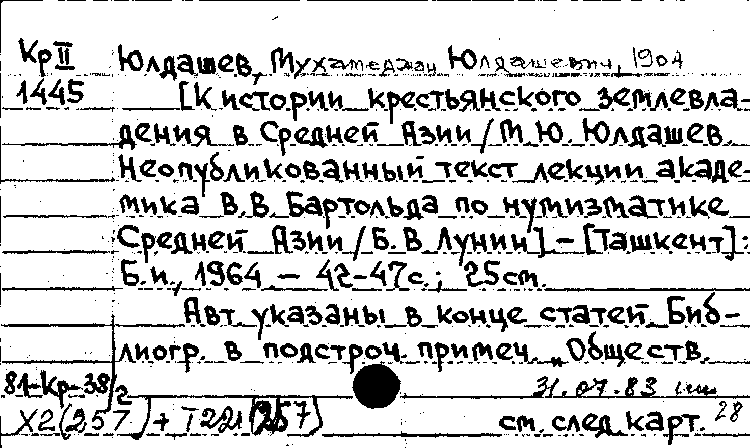 Кр II Юлдашев, Мухамеджан Юлдашевич, 1904
1445 [К истории крестьянского землевла-
дения в Средней Азии / М.Ю. Юлдашев.
Неопубликованный текст лекции акаде-
мика В.В. Бартольда по нумизматике
Средней Азии / Б.В. Лунин]. – [Ташкент]:
Б.и., 1964 – 42-47с.; 25см.
Авт. указаны в конце статей. Биб-
лиогр. в подстроч. примеч. „Обществ.
81-Кр-38/2 31.07.83
Х2(257) + Т221(257) см. след. карт. 28